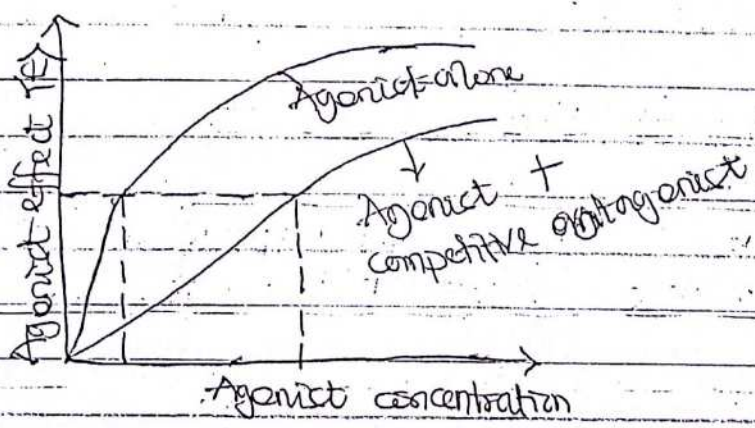 Agonist effect (E)
Agonist alone
Agonist +
competitive antagonist
Agonist concentration